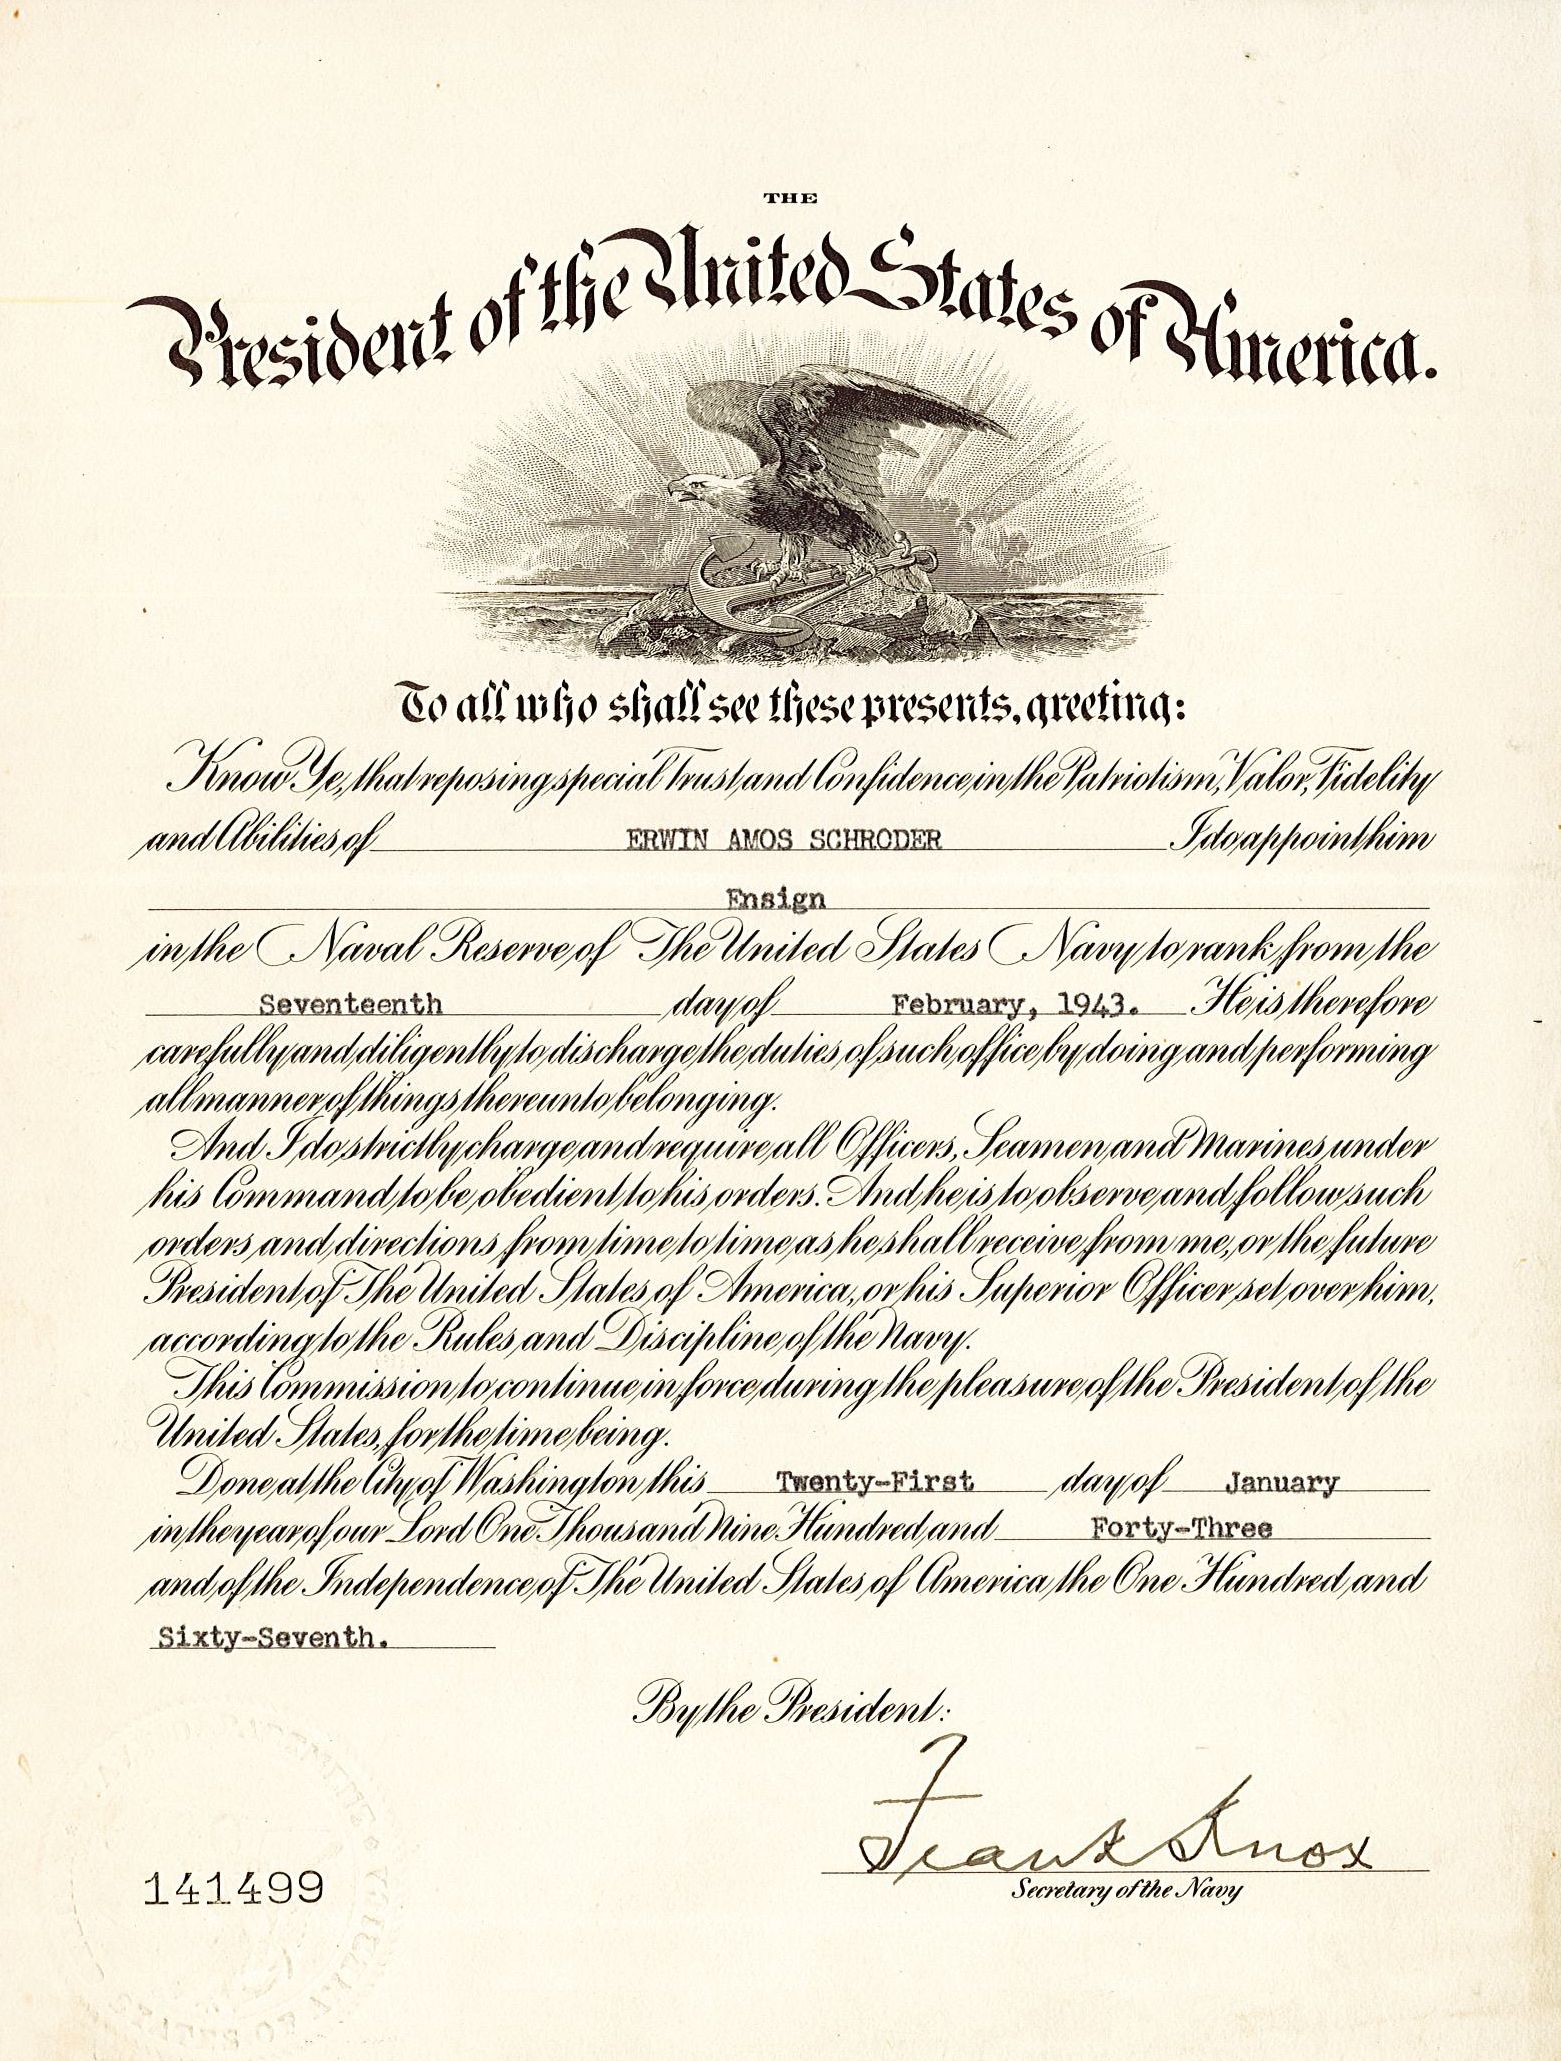 THE
President of the United States of America.
To all who shall see these presents, greeting:
Know Ye, that reposing special Trust and Confidence in the Patriotism, Valor, Fidelity
and Abilities of ERWIN AMOS SCHRODER I do appoint him
Ensign
in the Naval Reserve of The United States Navy to rank from the
Seventeenth day of February, 1943. He is therefore
carefully and diligently to discharge the duties of such office by doing and performing
all manner of things thereunto belonging.
And I do strictly charge and require all Officers, Seamen and Marines under
his Command to be obedient to his orders. And he is to observe and follow such
orders and directions from time to time as he shall receive from me, or the future
President of The United States of America, or his Superior Officer set over him,
according to the Rules and Discipline of the Navy.
This Commission to continue in force during the pleasure of the President of the
United States, for the time being.
Done at the City of Washington this Twenty-First day of January
in the year of our Lord One Thousand Nine Hundred and Forty-Three
and of the Independence of The United States of America the One Hundred and
Sixty-Seventh.
By the President:
Frank Knox
Secretary of the Navy
141499